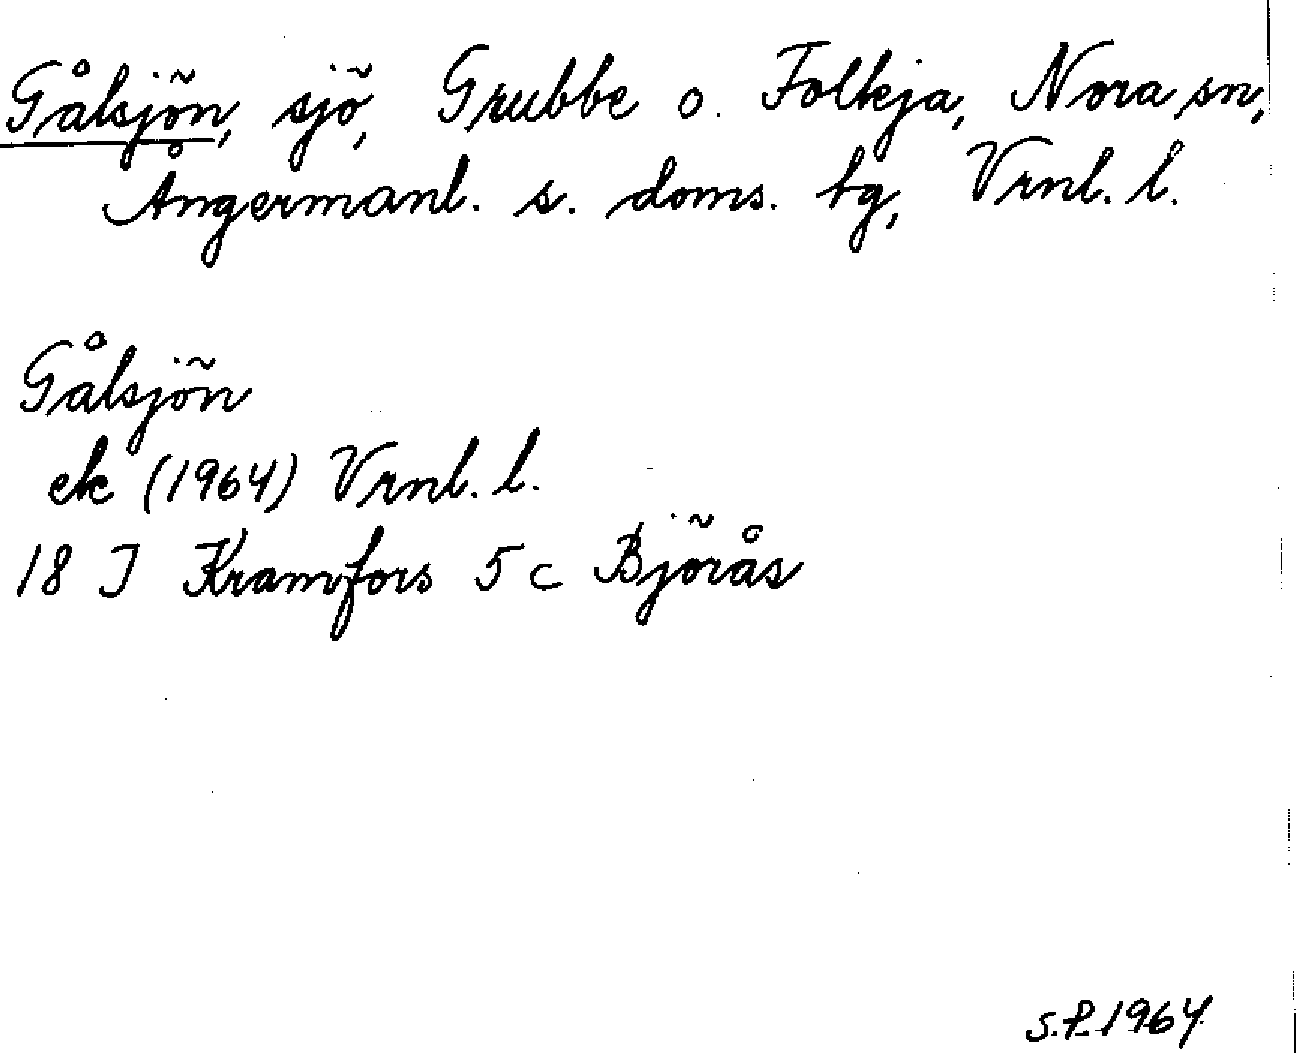 Gålsjön, sjö, Grubbe o. Folkja, Nora sn,
Ångermanl. s. doms. tg, Vrnl. l.
Gålsjön
ek (1964) Vrnl. l.
18 I Kramfors 5 c Björås
S.P. 1964